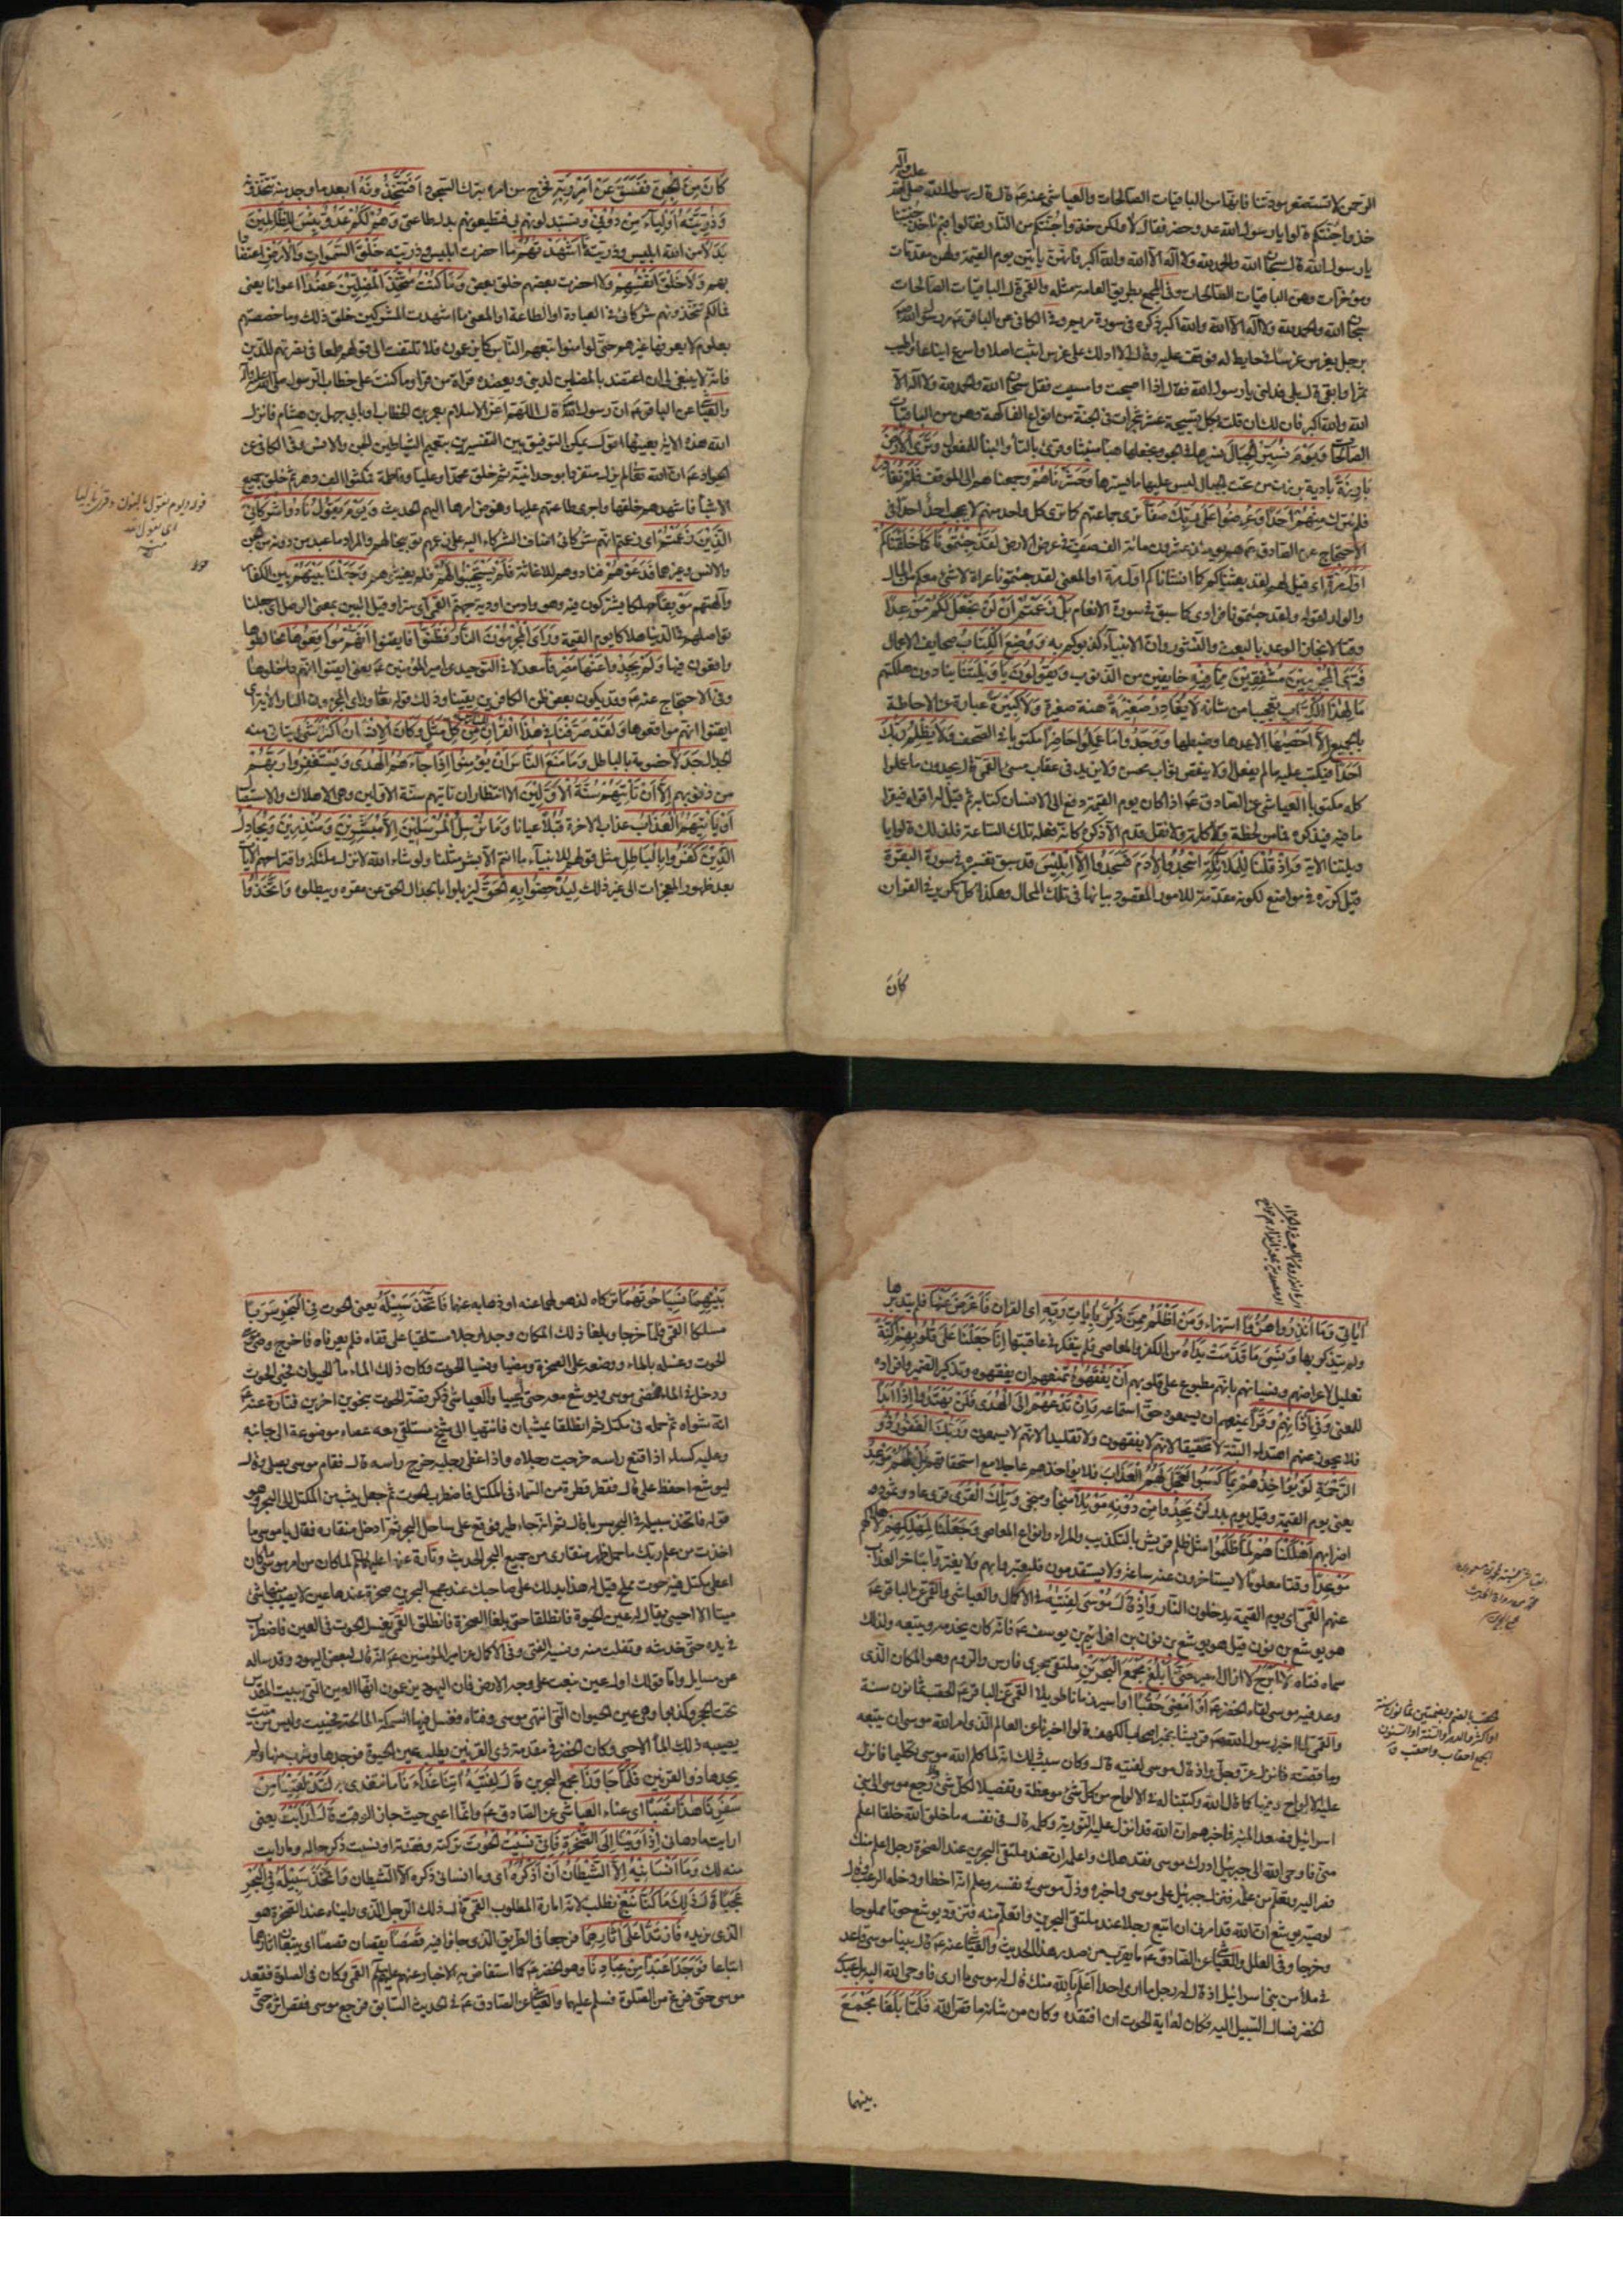 الرحمن لا تستصغر مودتنا فانها من الباقيات الصالحات والعياشي عنه ع قال قال رسول الله صلى الله
عليه وآله
خذوا جنتكم قالوا يا رسول الله عدو حضر فقال لا ولكن خذوا جنتكم من النار فقالوا بم نأخذ جنتنا
يا رسول الله قال سبحان الله والحمد لله ولا اله الا الله والله اكبر فانهن ياتين يوم القيمة ولهن مقدمات
ومؤخرات وهن الباقيات الصالحات وفي المجمع بطريق العامة مثله والقمي قال الباقيات الصالحات
سبحان الله والحمد لله ولا اله الا الله والله اكبر ذكره في سورة مريم وفي الكافي عن الباقر ع مر رسول الله ص
برجل يغرس غرسا في حايط له فوقف عليه وقال الا ادلك على غرس اثبت اصلا واسرع ايناعا واطيب
ثمرا وابقى قال بلى فدلني يا رسول الله فقال اذا اصبحت وامسيت فقل سبحان الله والحمد لله ولا اله الا
الله والله اكبر فان لك ان قلته بكل تسبيحة عشر شجرات في الجنة من انواع الفاكهة وهن من الباقيات
الصالحات وَيَوْمَ نُسَيِّرُ الْجِبَالَ نسيرها في الجو ونجعلها هباء منبثا وقرئ بالتاء والبناء للمفعول وَتَرَى الْأَرْضَ
بَارِزَةً بادية برزت من تحت الجبال ليس عليها ما يسترها وَحَشَرْنَاهُمْ وجمعناهم الى الموقف فَلَمْ نُغَادِرْ
فلم نترك مِنْهُمْ أَحَدًا وَعُرِضُوا عَلَى رَبِّكَ صَفًّا ترى جماعتهم كما ترى كل واحد منهم لا يحجب احد احدا في
الاحتجاج عن الصادق ع هم يومئذ عشرون ومائة الف صف في عرض الارض لَقَدْ جِئْتُمُونَا كَمَا خَلَقْنَاكُمْ
أَوَّلَ مَرَّةٍ اي قيل لهم لقد بعثناكم كما انشاناكم اول مرة او المعنى لقد جئتمونا عراة لا شئ معكم من المال
والولد لقوله ولقد جئتمونا فرادى كما سبق في سورة الانعام بَلْ زَعَمْتُمْ أَنْ لَنْ نَجْعَلَ لَكُمْ مَوْعِدًا
وقتا لانجاز الوعد بالبعث والنشور وان الانبياء كذبوكم به وَوُضِعَ الْكِتَابُ صحايف الاعمال
فَتَرَى الْمُجْرِمِينَ مُشْفِقِينَ مِمَّا فِيهِ خايفين من الذنوب وَيَقُولُونَ يَا وَيْلَتَنَا ينادون هلكتهم
مَالِ هَذَا الْكِتَابِ تعجبا من شانه لَا يُغَادِرُ صَغِيرَةً هنة صغيرة وَلَا كَبِيرَةً عبارة عن الاحاطة
بالجميع إِلَّا أَحْصَاهَا الا عدها وضبطها وَوَجَدُوا مَا عَمِلُوا حَاضِرًا مكتوبا في الصحف وَلَا يَظْلِمُ رَبُّكَ
أَحَدًا فيكتب عليه ما لم يفعل او لا ينقص ثواب محسن ولا يزيد في عقاب مسئ القمي قال يجدون ما عملوا
كله مكتوبا العياشي عن الصادق ع اذا كان يوم القيمة دفع الى الانسان كتابه ثم قيل له اقرا فيقرا
ما فيه فيذكره فما من لحظة ولا كلمة ولا نقل قدم الا ذكره كانه فعله تلك الساعة فلذلك قالوا يا
ويلتنا الاية وَإِذْ قُلْنَا لِلْمَلَائِكَةِ اسْجُدُوا لِآدَمَ فَسَجَدُوا إِلَّا إِبْلِيسَ قد سبق تفسيره في سورة البقرة
قيل كرره في مواضع لكونه مقدمة للامور المقصود بيانها في تلك المحال وهكذا كل تكرير في القران
كان
كَانَ مِنَ الْجِنِّ فَفَسَقَ عَنْ أَمْرِ رَبِّهِ فخرج من امره بترك السجود أَفَتَتَّخِذُونَهُ ابعد ما وجد منه تتخذونه
وَذُرِّيَّتَهُ أَوْلِيَاءَ مِنْ دُونِي وتستبدلونهم بي فتطيعونهم بدل طاعتي وَهُمْ لَكُمْ عَدُوٌّ بِئْسَ لِلظَّالِمِينَ
بَدَلًا من الله ابليس وذريته مَا أَشْهَدْتُهُمْ ما احضرت ابليس وذريته خَلْقَ السَّمَوَاتِ وَالْأَرْضِ اعتضادا
بهم وَلَا خَلْقَ أَنْفُسِهِمْ ولا احضرت بعضهم خلق بعض وَمَا كُنْتُ مُتَّخِذَ الْمُضِلِّينَ عَضُدًا اعوانا يعني
فما لكم تتخذونهم شركائي في العبادة او الطاعة او المعنى ما اشهدت المشركين خلق ذلك وما خصصتهم
بعلوم لا يعرفها غيرهم حتى لو امنوا تبعهم الناس كما يزعمون فلا تلتفت الى قولهم طمعا في نصرتهم للدين
فانه لا ينبغي لي ان اعتضد بالمضلين لديني ويعضده قراءة من قرا وما كنت على خطاب الرسول صلى الله عليه وآله
والعياشي عن الباقر ع ان رسول الله ص قال اللهم اعز الاسلام بعمر بن الخطاب او بابي جهل بن هشام فانزل
الله هذه الاية يعنيهما اقول يمكن التوفيق بين التفسيرين بتعميم الشياطين الجن والانس وفي الكافي عن
الجواد ع ان الله تعالى لم يزل متفردا بوحدانيته ثم خلق محمدا وعليا وفاطمة فمكثوا الف دهر ثم خلق جميع
الاشياء فاشهدهم خلقها واجرى طاعتهم عليها وفوض امرها اليهم الحديث وَيَوْمَ يَقُولُ نَادُوا شُرَكَائِيَ
الَّذِينَ زَعَمْتُمْ اي زعم انهم شركائي اضاف الشركاء اليه على زعمهم توبيخا لهم والمراد ما عبد من دونه من الجن
والانس وغيرهما فَدَعَوْهُمْ فنادوهم للاغاثة فَلَمْ يَسْتَجِيبُوا لَهُمْ فلم يغيثوهم وَجَعَلْنَا بَيْنَهُمْ بين الكفار
وآلهتهم مَوْبِقًا مهلكا يشتركون فيه وهو واد من اودية جهنم القمي اي سترا وقيل البين بمعنى الوصل اي جعلنا
تواصلهم في الدنيا هلاكا يوم القيمة وَرَأَى الْمُجْرِمُونَ النَّارَ فَظَنُّوا فايقنوا أَنَّهُمْ مُوَاقِعُوهَا مخالطوها
واقعون فيها وَلَمْ يَجِدُوا عَنْهَا مَصْرِفًا معدلا في التوحيد عن امير المؤمنين ع يعني ايقنوا انهم داخلوها
وفي الاحتجاج عنه ع وقد يكون بعض ظن الكافرين يقينا وذلك قوله تعالى وراى المجرمون النار الاية اي
ايقنوا انهم مواقعوها وَلَقَدْ صَرَّفْنَا فِي هَذَا الْقُرْآنِ لِلنَّاسِ مِنْ كُلِّ مَثَلٍ وَكَانَ الْإِنْسَانُ أَكْثَرَ شَيْءٍ يتاتى منه
الجدل جَدَلًا خصومة بالباطل وَمَا مَنَعَ النَّاسَ أَنْ يُؤْمِنُوا إِذْ جَاءَهُمُ الْهُدَى وَيَسْتَغْفِرُوا رَبَّهُمْ
من ذنوبهم إِلَّا أَنْ تَأْتِيَهُمْ سُنَّةُ الْأَوَّلِينَ الا انتظار ان تاتيهم سنة الاولين وهي الاهلاك والاستيصال
أَوْ يَأْتِيَهُمُ الْعَذَابُ عذاب الاخرة قُبُلًا عيانا وَمَا نُرْسِلُ الْمُرْسَلِينَ إِلَّا مُبَشِّرِينَ وَمُنْذِرِينَ وَيُجَادِلُ
الَّذِينَ كَفَرُوا بِالْبَاطِلِ مثل قولهم للانبياء ما انتم الا بشر مثلنا ولو شاء الله لانزل ملئكة واقتراحهم الآيات
بعد ظهور المعجزات الى غير ذلك لِيُدْحِضُوا بِهِ الْحَقَّ ليزيلوا بالجدال الحق عن مقره ويبطلوه وَاتَّخَذُوا
قوله ويوم نقول بالنون وقرئ بالياء
اي يقول الله
منه
آيَاتِي وَمَا أُنْذِرُوا هُزُوًا استهزاء وَمَنْ أَظْلَمُ مِمَّنْ ذُكِّرَ بِآيَاتِ رَبِّهِ اي القران فَأَعْرَضَ عَنْهَا فلم يتدبرها
ولم يتذكر بها وَنَسِيَ مَا قَدَّمَتْ يَدَاهُ من الكفر والمعاصي فلم يتفكر في عاقبتها إِنَّا جَعَلْنَا عَلَى قُلُوبِهِمْ أَكِنَّةً
تعليل لاعراضهم ونسيانهم بانهم مطبوع على قلوبهم أَنْ يَفْقَهُوهُ تمنعهم ان يفقهوه وتذكير الضمير وافراده
للمعنى وَفِي آذَانِهِمْ وَقْرًا يمنعهم ان يسمعوه حق استماعه وَإِنْ تَدْعُهُمْ إِلَى الْهُدَى فَلَنْ يَهْتَدُوا إِذًا أَبَدًا
فلا يكون منهم اهتداء البتة لا تحقيقا لانهم لا يفقهون ولا تقليدا لانهم لا يسمعون وَرَبُّكَ الْغَفُورُ ذُو
الرَّحْمَةِ لَوْ يُؤَاخِذُهُمْ بِمَا كَسَبُوا لَعَجَّلَ لَهُمُ الْعَذَابَ فلا يؤاخذهم عاجلا مع استحقاقهم بَلْ لَهُمْ مَوْعِدٌ
يعني يوم القيمة وقيل يوم بدر لَنْ يَجِدُوا مِنْ دُونِهِ مَوْئِلًا منجا وملجئ وَتِلْكَ الْقُرَى قرى عاد وثمود و
اضرابهم أَهْلَكْنَاهُمْ لَمَّا ظَلَمُوا مثل ظلم قريش بالتكذيب والمراء وانواع المعاصي وَجَعَلْنَا لِمَهْلِكِهِمْ لاهلاكهم
مَوْعِدًا وقتا معلوما لا يستاخرون عنه ساعة ولا يستقدمون فليعتبروا بهم ولا يغتروا بتاخر العذاب
عنهم القمي اي يوم القيمة يدخلون النار وَإِذْ قَالَ مُوسَى لِفَتَيهُ في الاكمال والعياشي والقمي عن الباقر ع
هو يوشع بن نون قيل هو يوشع بن نون بن افراثيم بن يوسف ع فانه كان يخدمه ويتبعه ولذلك
سماه فتاه لَا أَبْرَحُ لا ازال اسير حَتَّى أَبْلُغَ مَجْمَعَ الْبَحْرَيْنِ ملتقى بحري فارس والروم وهو المكان الذى
وعد فيه موسى لقاء الخضر ع أَوْ أَمْضِيَ حُقُبًا او اسير زمانا طويلا القمي عن الباقر ع الحقب ثمانون سنة
والقمي لما اخبر رسول الله ص قريشا بخبر اصحاب الكهف قالوا اخبرنا عن العالم الذى امر الله موسى ان يتبعه
وما قصته فانزل عز وجل واذ قال موسى لفتيه قال وكان سبب ذلك انه لما كلم الله موسى تكليما فانزل
عليه الالواح وفيها كما قال الله وكتبنا له في الالواح من كل شئ موعظة وتفصيلا لكل شئ رجع موسى الى بني
اسرائيل فصعد المنبر فاخبرهم ان الله قد انزل عليه التورية وكلمه قال في نفسه ما خلق الله خلقا اعلم
مني فاوحى الله الى جبرئيل ادرك موسى فقد هلك واعلمه ان عند ملتقى البحرين عند الصخرة رجل اعلم منك
فصر اليه وتعلم من علمه فنزل جبرئيل على موسى واخبره وذل موسى في نفسه وعلم انه اخطا ودخله الرعب وقال
لوصيه يوشع ان الله قد امرني ان اتبع رجلا عند ملتقى البحرين واتعلم منه فتزود يوشع حوتا مملوحا
وخرجا وفي العلل والعياشي عن الصادق ع ما يقرب من صدر هذا الحديث والعياشي عنه ع قال بينا موسى قاعد
في ملأ من بني اسرائيل اذ قال له رجل ما ارى احدا اعلم بالله منك قال موسى ما ارى فاوحى الله اليه بلى عبدي
الخضر فسال السبيل اليه وكان له اية الحوت ان افتقده وكان من شانه ما قص الله فَلَمَّا بَلَغَا مَجْمَعَ
بينهما
الحقب بالضم وبضمتين ثمانون سنة
او اكثر والدهر والسنة او السنون
الجمع احقاب واحقب ق
بَيْنِهِمَا نَسِيَا حُوتَهُمَا تركاه لذهولهما عنه او ذهابه عنهما فَاتَّخَذَ سَبِيلَهُ يعني الحوت فِي الْبَحْرِ سَرَبًا
مسلكا القمي فلما خرجا وبلغا ذلك المكان وجدا رجلا مستلقيا على قفاه فلم يعرفاه فاخرج وصي موسى
الحوت وغسله بالماء ووضعه على الصخرة ومضيا ونسيا الحوت وكان ذلك الماء ماء الحيوان فحيى الحوت
ودخل في الماء فمضى موسى ويوشع معه حتى عييا والعياشي ذكر قصة الحوت بنحوين اخرين فتارة عنه ع
انه شواه ثم حمله في مكتل ثم انطلقا يمشيان فانتهيا الى شيخ مستلقى معه عصاه موضوعة الى جانبه
وعليه كساء اذا قنع راسه خرجت رجلاه واذا غطى رجليه خرج راسه قال فقام موسى يصلى وقال
ليوشع احفظ على قال فقطر قطرة من السماء في المكتل فاضطرب الحوت ثم جعل يثب من المكتل الى البحر وهو
قوله فاتخذ سبيله في البحر سربا قال ثم انه جاء طير فوقع على ساحل البحر ثم ادخل منقاره فقال يا موسى ما
اخذت من علم ربك ما حمل ظهر منقاري من جميع البحر الحديث وتارة عنهما عليهما السلام لما كان من امر موسى ما كان
اعطى مكتل فيه حوت مملح قيل له هذا يدلك على صاحبك عند مجمع البحرين صخرة عندها عين لا يصيب منها شئ
ميتا الا احيي يقال له عين الحيوة فانطلقا حتى بلغا الصخرة فانطلق الفتى يغسل الحوت في العين فاضطرب
في يده حتى خدشه وتفلت منه ونسيه الفتى وفي الاكمال عن امير المؤمنين ع انه قال لبعض اليهود وقد ساله
عن مسايل واما قولك اول عين نبعت على وجه الارض فان اليهود يزعمون انها العين التي ببيت المقدس
تحت الحجر وكذبوا وهي عين الحيوان التي انتهى موسى وفتاه فغسل فيها السمكة المالحة فحييت وليس من ميت
يصيبه ذلك الماء الا حيى وكان الخضر في مقدمة ذي القرنين يطلب عين الحيوة فوجدها وشرب منها ولم
يجدها ذو القرنين فَلَمَّا جَاوَزَا مجمع البحرين قَالَ لِفَتَيهُ آتِنَا غَدَاءَنَا ما نتغدى به لَقَدْ لَقِينَا مِنْ
سَفَرِنَا هَذَا نَصَبًا اي عناء العياشي عن الصادق ع وانما اعيى حيث جاز الوقت قَالَ أَرَأَيْتَ يعني
ارايت ما دهاني إِذْ أَوَيْنَا إِلَى الصَّخْرَةِ فَإِنِّي نَسِيتُ الْحُوتَ تركته وفقدته او نسيت ذكر حاله وما رايت
منه لك وَمَا أَنْسَانِيهُ إِلَّا الشَّيْطَانُ أَنْ أَذْكُرَهُ اي وما انساني ذكره الا الشيطان وَاتَّخَذَ سَبِيلَهُ فِي الْبَحْرِ
عَجَبًا قَالَ ذَلِكَ مَا كُنَّا نَبْغِ نطلب لانه امارة المطلوب القمي قال ذلك الرجل الذى رايناه عند الصخرة هو
الذى نريده فَارْتَدَّا عَلَى آثَارِهِمَا فرجعا في الطريق الذى جاؤا فيه قَصَصًا يقصان قصصا اي يتبعان اثارهما
اتباعا فَوَجَدَا عَبْدًا مِنْ عِبَادِنَا وهو الخضر ع كما استفاض به الاخبار عنهم عليهم السلام القمي وكان في الصلوة فقعد
موسى حتى فرغ من الصلوة فسلم عليهما والعياشي عن الصادق ع في الحديث السابق فرجع موسى فقص اثره حتى